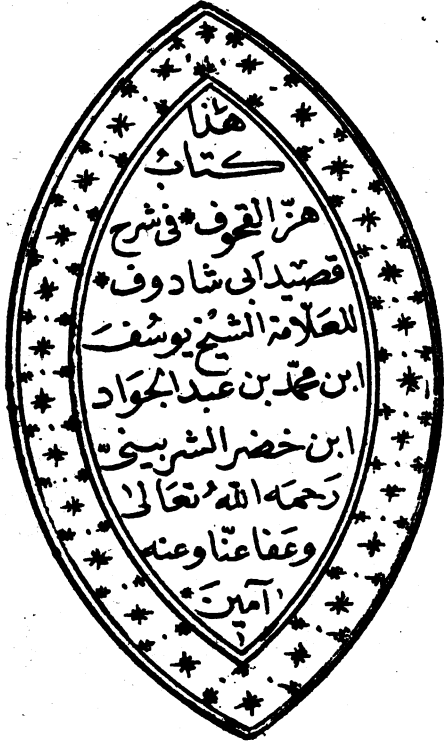 هٰذا
كتاب
هزّ القحوف * فى شرح
قصيد أبى شادوف *
للعلّامة الشيخ يوسف
ابن محمّد بن عبد الجواد
ابن خضر الشربينىّ
رحمه اللهُ تعالى
وعفا عنّا وعنه
آمين